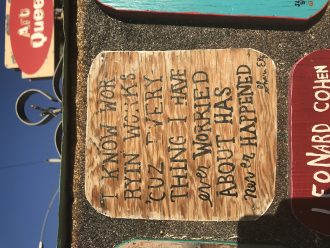 Art
Queen
I KNOW WOR
RYIN WORKS
'CUZ EVERY
THING I HAVE
ever WORRIED
ABOUT HAS
never HAPPENED
LEONARD COHEN